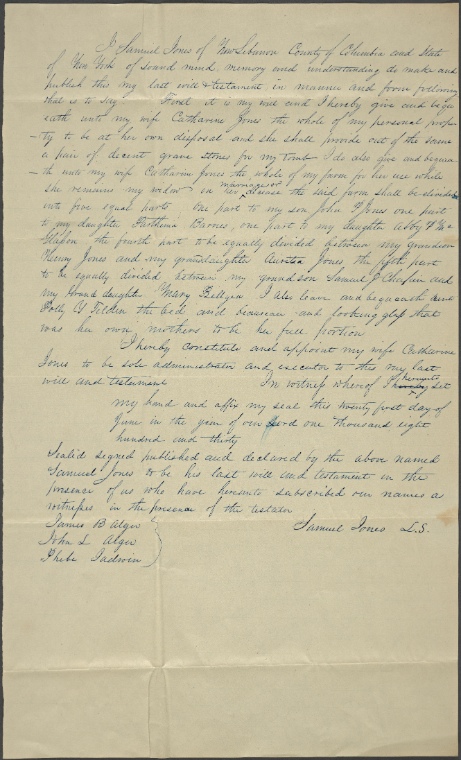 I Samuel Jones of New Lebanon County of Columbia and State
of New York of sound mind memory and understanding do make and
publish this my last will & testament in manner and form following
that is to say First it is my will and I hereby give and beque
eath unto my wife Catharine Jones the whole of my personal prope
-rty to be at her own disposal and she shall provide out of the same
a pair of decent grave stones for my tomb I do also give and bequea
-th unto my wife Catharine Jones the whole of my farm for her use while
she remains my widow on marriage or her decease the said farm shall be divided
into five equal parts One part to my son John Jones one part
to my daughter Parthena Barnes, one part to my daughter Abby
the fourth part to be equally divided between my grandson
Henry Jones and my grandaughter Jones the fifth part
to be equally divided between my grandson Samuel J Chapin and
my grand daughter Mary I also leave and bequeath
Polly Y Tilden the bed and bureau and looking glass that
was her own mothers to be her full portion
I hereby constitute and appoint my wife Catharine
Jones to be sole administrator and executor to this my last
will and testament In witness whereof I hereunto set
my hand and affix my seal this twenty first day of
June in the year of our Lord one thousand eight
hundred and thirty
Sealed signed published and declared by the above named
Samuel Jones to be his last will and testament in the
presence of us who have hereunto subscribed our names as
witnesses in the presence of the testator
James B Alger Samuel Jones L.S.
John L Alger
Phebe Jadwin